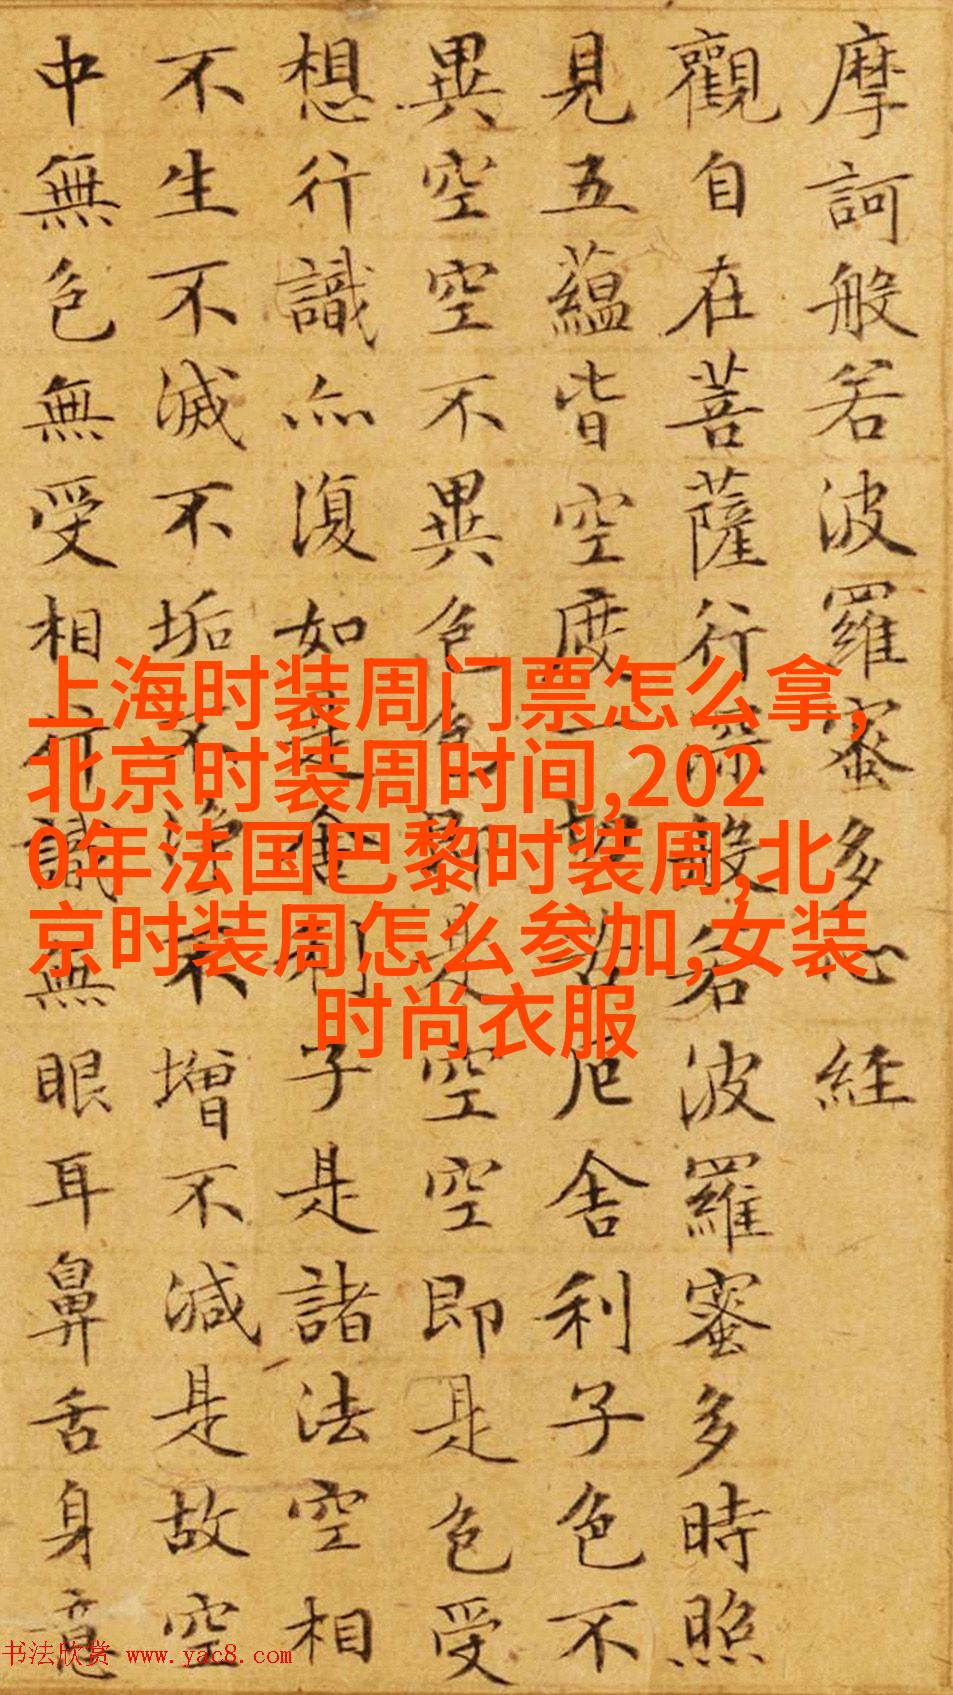 摩訶般若波羅蜜多心経
觀自在菩薩行深般若波羅蜜多時照
見五蘊皆空度一切苦厄舍利子色不
異空空不異色色即是空空即是色受
想行識亦復如是舍利子是諸法空相
不生不滅不垢不淨不增不減是故空
中無色無受相行識無眼耳鼻舌身意
上海时装周门票怎么拿,
北京时装周时间,202
0年法国巴黎时装周,北
京时装周怎么参加,女装
时尚衣服
书法欣赏 www.yac8.com